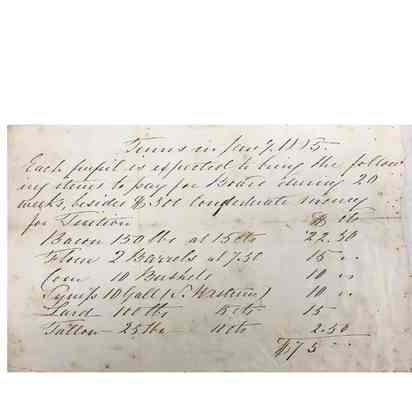 Terms in Jany 1865.
Each pupil is expected to bring the follow
ing items to pay for Board during 20
weeks, besides $300 Confederate money
for Tuition $ cts
Bacon 150 lbs at 15 cts 22.50
Flour 2 Barrels at 7.50 15 "
Corn 10 Bushels 10 "
10 Galls 10 "
Lard 100 lbs 15 cts 15
Tallow 25 lbs 10 cts 2.50
$75 "